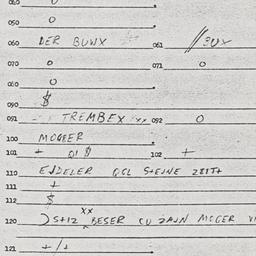 050 0
060 DER BUWX 061 //BUX
070 0 071 0
080 0
090 $
091 TREMBEX xx 092 0
100 MCGEER
101 + QI $ 102 +
110 EJDELER QGL S+EJNE ZEIT+
111 +
112 $
xx
120 )S+IZ BESER CU ZAJN MCGER
121 +/+